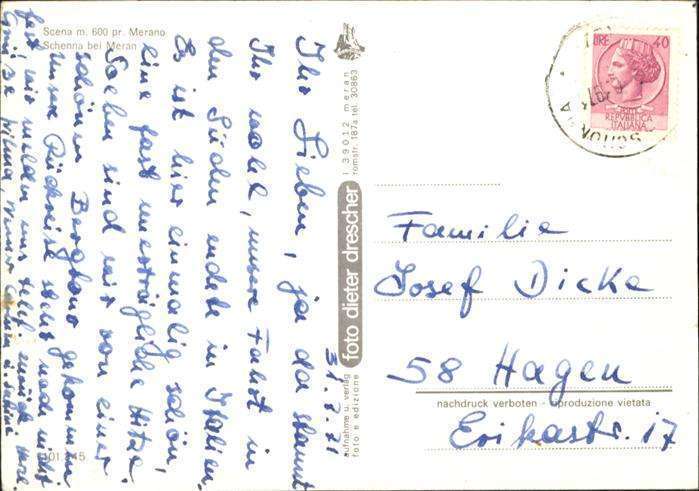 Scena m. 600 pr. Merano
Schenna bei Meran
31.7.71
Ihr Lieben, ja da staunt
Ihr wohl, unsere Fahrt in
den Süden endete in Italien.
Es ist hier einmalig schön,
eine fast unerträgliche Hitze.
Soeben sind wir von einer
schönen Bergtour gekommen
unsere Rückreise steht noch nicht
fest, wir melden uns telef. zurück
Grüße Wilma, Werner
foto dieter drescher
I 39012 meran
romstr. 187a tel. 30863
aufnahme u. verlag
foto e edizione
LIRE 40
REPVBBLICA
ITALIANA
Familie
Josef Dicke
58 Hagen
nachdruck verboten - riproduzione vietata
Erikastr. 17